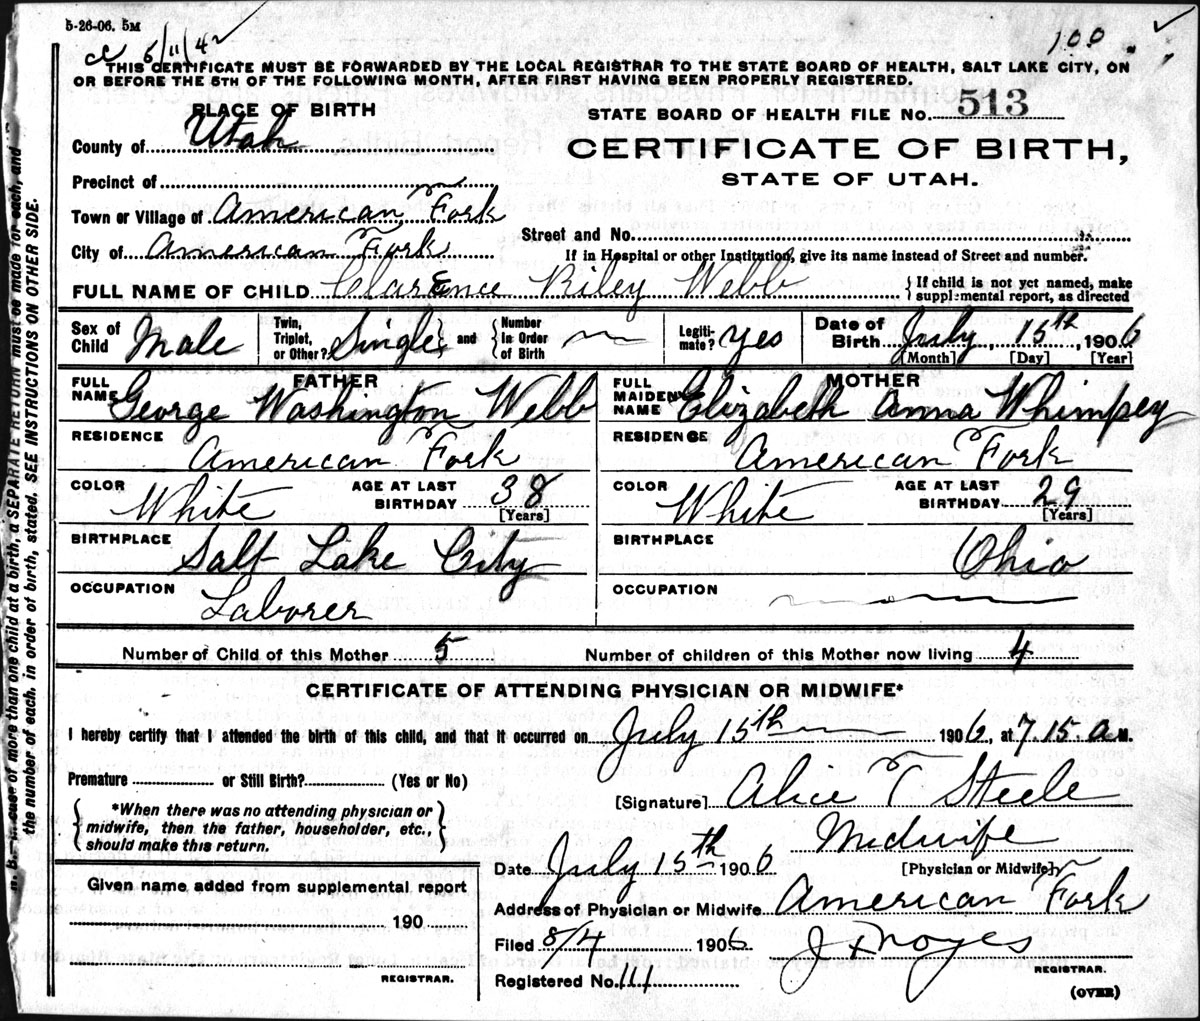 5-26-06. 5M
5/11/42
100
THIS CERTIFICATE MUST BE FORWARDED BY THE LOCAL REGISTRAR TO THE STATE BOARD OF HEALTH, SALT LAKE CITY, ON
OR BEFORE THE 5TH OF THE FOLLOWING MONTH, AFTER FIRST HAVING BEEN PROPERLY REGISTERED.
PLACE OF BIRTH
STATE BOARD OF HEALTH FILE NO. 513
County of Utah
CERTIFICATE OF BIRTH,
STATE OF UTAH.
Precinct of
Town or Village of American Fork
City of American Fork
Street and No.
If in Hospital or other Institution, give its name instead of Street and number.
FULL NAME OF CHILD Clarence Riley Webb { If child is not yet named, make supplemental report, as directed
Sex of Child Male Twin, Triplet, or Other? Single } and { Number in Order of Birth Legiti-mate? Yes Date of Birth July, 15th, 1906
[Month] [Day] [Year]
FATHER
FULL NAME George Washington Webb
MOTHER
FULL MAIDEN NAME Elizabeth Anna Whimpey
RESIDENCE American Fork
RESIDENCE American Fork
COLOR White AGE AT LAST BIRTHDAY 38 [Years]
COLOR White AGE AT LAST BIRTHDAY 29 [Years]
BIRTHPLACE Salt Lake City
BIRTHPLACE Ohio
OCCUPATION Laborer
OCCUPATION
Number of Child of this Mother 5
Number of children of this Mother now living 4
CERTIFICATE OF ATTENDING PHYSICIAN OR MIDWIFE*
I hereby certify that I attended the birth of this child, and that it occurred on July 15th 1906, at 7.15 a M.
Premature or Still Birth? (Yes or No)
{ *When there was no attending physician or
midwife, then the father, householder, etc.,
should make this return. }
[Signature] Alice T Steele
Midwife
Date July 15th 1906 [Physician or Midwife]
Given name added from supplemental report
190
REGISTRAR.
Address of Physician or Midwife American Fork
Filed 8/4 1906 J F Noyes
REGISTRAR.
Registered No. 111
(OVER)
N. B.—In case of more than one child at a birth, a SEPARATE RETURN must be made for each, and
the number of each, in order of birth, stated. SEE INSTRUCTIONS ON OTHER SIDE.